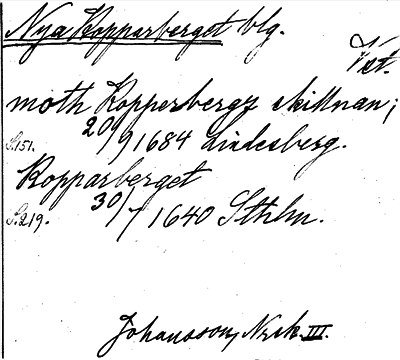 Nya Kopparberget blg.
Vst.
moth Kopperbergz skillnan;
S.151. 20/9 1684 Lindesberg.
Kopparberget
S.219. 30/7 1640 Sthlm.
Johansson, Nrck. III.